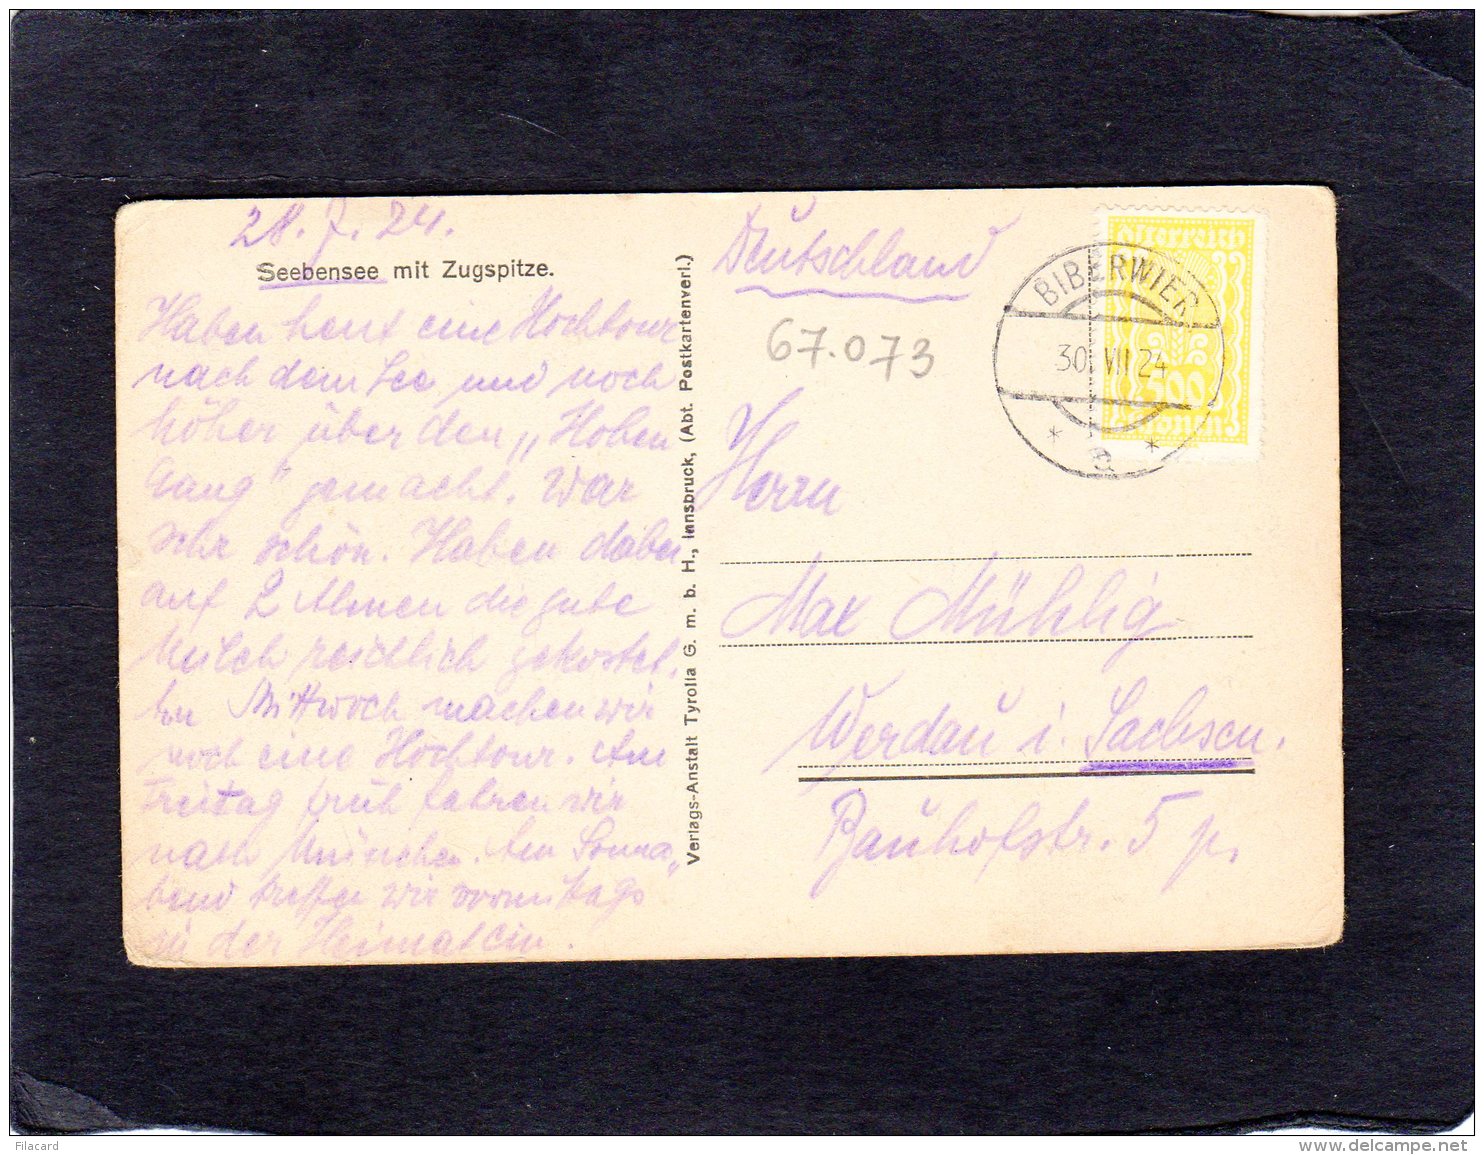 28. 7. 24.
Seebensee mit Zugspitze.
Haben heut eine Hochtour
nach dem See und noch
höher über den „Hohen
Gang" gemacht. War
sehr schön. Haben dabei
auf 2 Almen die gute
Milch reichlich gekostet.
Mittwoch machen wir
noch eine Hochtour. Am
Freitag früh fahren wir
nach München. Am Sonna„
bend treffen wir vormittags
in der Heimat ein.
Verlags-Anstalt Tyrolia G. m. b. H., Innsbruck, (Abt. Postkartenverl.)
Deutschland
67.073
BIBERWIER
30. VII 24
* a *
Österreich
500
Kronen
Herrn
Max Mühlig
Werdau i. Sachsen.
Bauhofstr. 5 p.
Filacard
www.delcampe.net